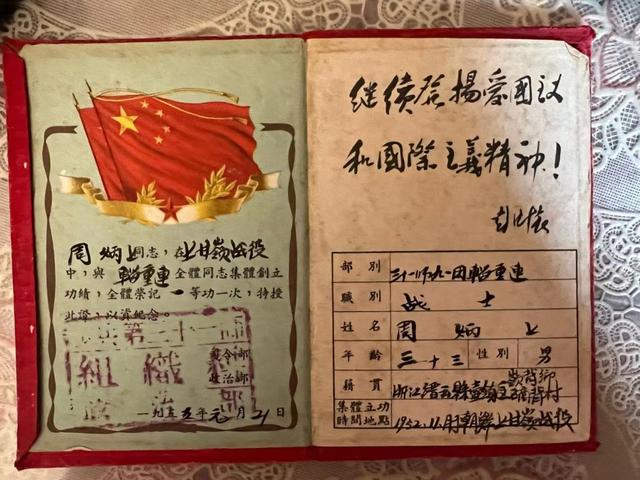 周炳上同志，在上甘嶺战役
中，與 輜重連 全體同志集體創立
功績，全體榮記 一 等功一次，特授
此證，以資紀念。
第三十一師
司令部
政治部
組織
一九五五年元月21日
继續发揚爱國主义
和國際主義精神！
彭德懷
部別 三十一师九一团輜重連
職別 战士
姓名 周炳上
年齡 三十三 性別 男
籍貫 浙江縉云縣
集體立功
時間地點 1952.11.月朝鮮上甘嶺战役